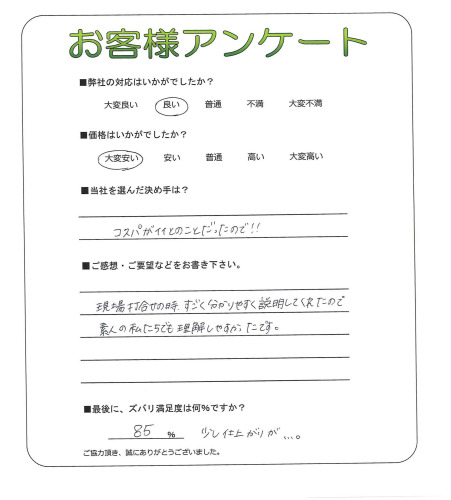 お客様アンケート
■弊社の対応はいかがでしたか？
大変良い 良い 普通 不満 大変不満
■価格はいかがでしたか？
大変安い 安い 普通 高い 大変高い
■当社を選んだ決め手は？
コスパがイイとのことだったので!!
■ご感想・ご要望などをお書き下さい。
現場打合せの時、すごく分かりやすく説明してくれたので
素人の私たちでも理解しやすかったです。
■最後に、ズバリ満足度は何%ですか？
85 % 少し仕上がりが…。
ご協力頂き、誠にありがとうございました。